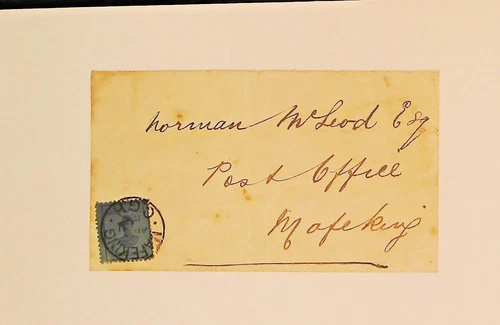 Norman McLeod Esq
Post Office
Mafeking
MAFEKING · C.G.H.